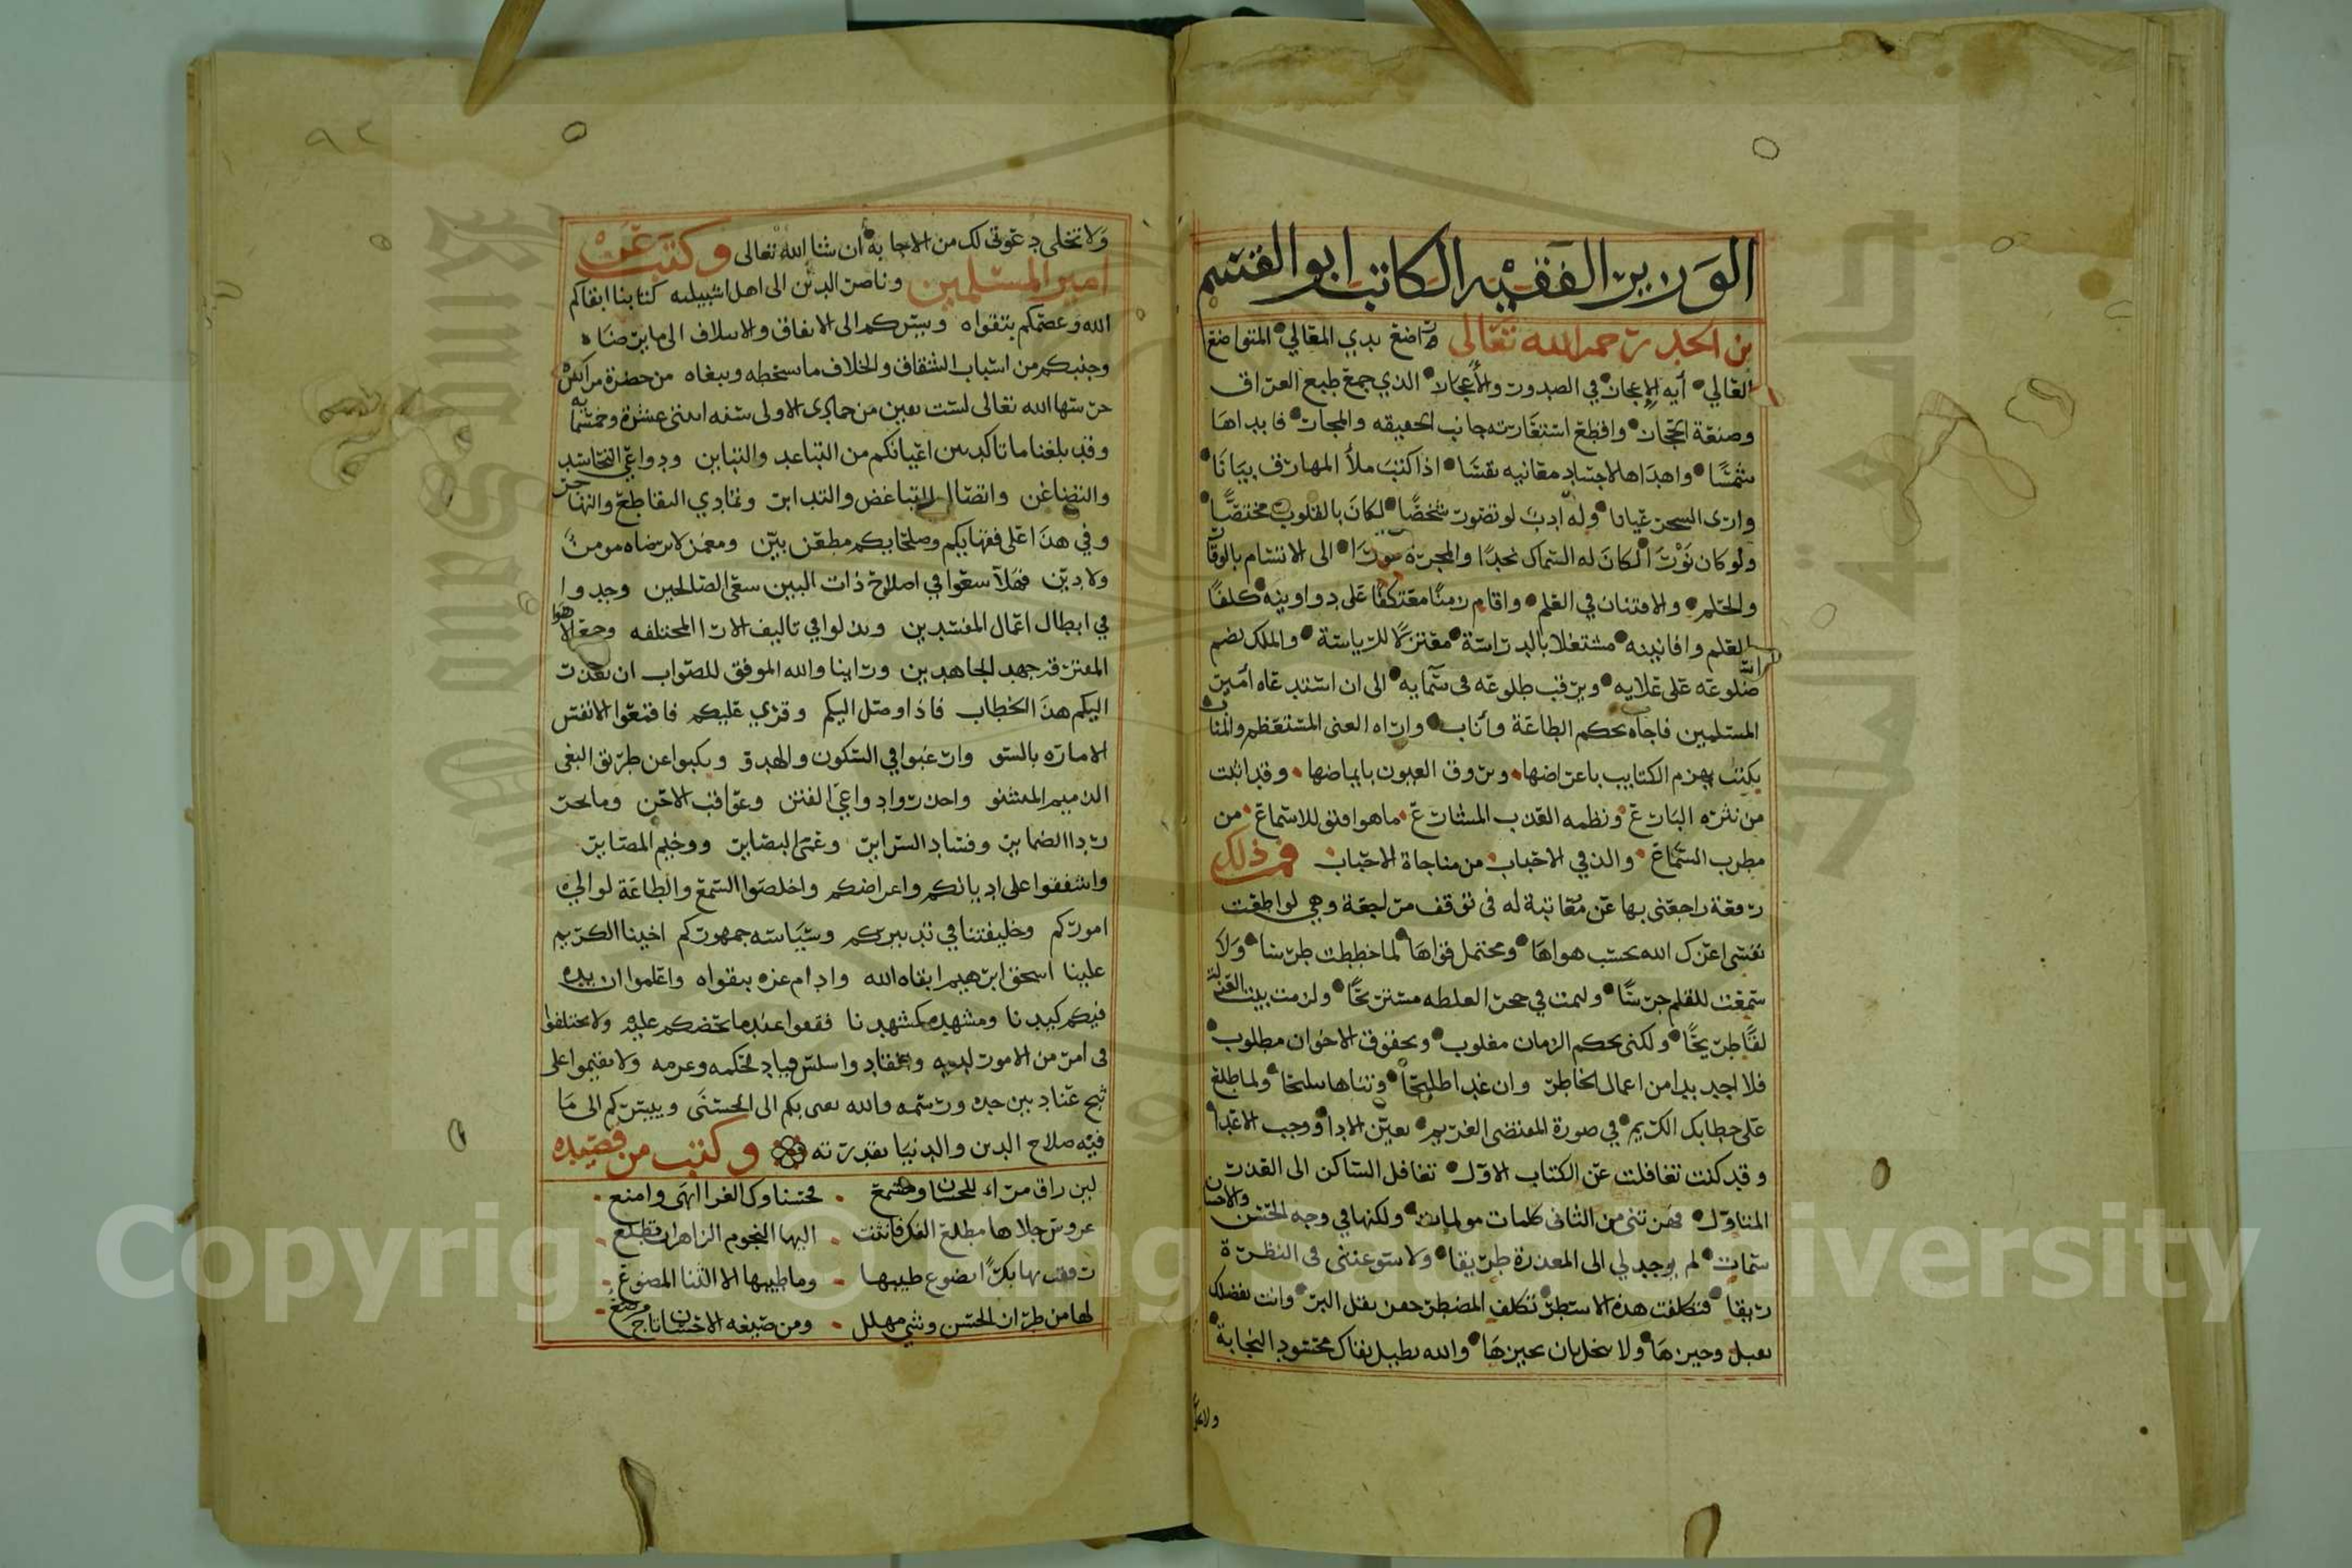 الوزير الفقيه الكاتب ابو القسم
بن الجد رحمه الله تعالى راضع ثدي المعالي المتواضع
العالي أية الإعجاز في الصدور والأعجاز الذي جمع طبع العراق
وصنعة الحجاز واقطع استعارته جانب الحقيقه والمجاز فابداها
شمسا واهداها لاجساد معانيه نفسا اذا كتب ملأ المهارق بيانا
وارى السحر عيانا وله ادب لو تصور شخصا لكان بالقلوب مختصا
ولو كان نورا لكان له السماك نجدا والمجرة غورا الى الاتسام بالوقار
والحلم والافتنان في العلم واقام زمنا معتكفا على دواوينه كلفا
بالعلم وافانينه مشتغلا بالدراسة معتزلا للرياسة والملك يضم
ضلوعه على علايه ويرقب طلوعه فى سمايه الى ان استدعاه أمير
المسلمين فاجابه بحكم الطاعة وأناب واراه الغنى المستعظم والمناب
بكتب يهزم الكتايب باعراضها وتروق العيون بايماضها وقد اثبت
من نثره البارع ونظمه العذب المشارع ما هو افتن للاسماع من
مطرب السماع والذ في الاحباب من مناجاة الاحباب فمن ذلك
رقعة راجعنى بها عن معاتبة له فى توقف مراجعة وهي لو اطعت
نفسى اعزك الله بحسب هواها ومحتمل قواها لما خططت طرسا ولا
سمعت للقلم جرسا ولنمت في حجر العطله مستريحا ولزمت بيت العزلة
لقا طريحا ولكنى بحكم الزمان مغلوب وبحقوق الاخوان مطلوب
فلا اجد بدا من اعمال الخاطر وان غدا طليحا وتناها سليحا ولما طلع
على خطابك الكريم في صورة المقتضى الغريم تعين الادا ووجب الاعدا
وقد كنت تغافلت عن الكتاب الاول تغافل الساكن الى العذر
المتاول فهزتنى من الثانى كلمات مولمات ولكنها في وجه الحسن والاحسان
سمات لم يوجد لي الى المعذرة طريقا ولا سوغتنى فى النظرة
ريقا فتكلفت هذه الاسطر تكلف المضطر حفز بقل البر وانت بفضلك
تقبل وجيزها ولا تبخل بان تجيزها والله يطيل بقاك محسود النجابة
ولا تخلى
ولا تخلى دعوتى لك من الاجابة ان شا الله تعالى وكتب عن
امير المسلمين وناصر الدين الى اهل اشبيليه كتابنا ابقاكم
الله وعصمكم بتقواه ويسركم الى الاتفاق والايتلاف الى ما يرضاه
وجنبكم من اسباب الشقاق والخلاف ما يسخطه وينعاه من حضرة مراكش
حرسها الله تعالى لست بقين من جمادى الاولى سنه اثنتى عشرة وخمسمايه
وقد بلغنا ما تاكد بين اعيانكم من التباعد والتباين ودواعي التحاسد
والتضاغن واتصال التباغض والتدابر وتمادي التقاطع والتهاجر
وفي هذا على فقهايكم وصلحايكم مطعن بين ومغمز لا يرضاه مومن
ولا دين فهلا سعوا في اصلاح ذات البين سعى الصالحين وجدوا
في ابطال اعمال المفسدين وبذلوا في تاليف الارا المختلفه وجمع الاهوا
المفترقه جهد المجاهدين وراينا والله الموفق للصواب ان نعذر
اليكم هذا الخطاب فاذا وصل اليكم وقري عليكم فاقمعوا الانفس
الاماره بالسو وارغبوا في السكون والهدو ونكبوا عن طريق البغى
الذميم المشنو واحذروا دواعي الفتن وعواقب الاحن وما يجر
ردا الضماير وفساد السراير وعمى البصاير ووخيم المصاير
واشفقوا على اديانكم واعراضكم واخلصوا السمع والطاعة لوالي
اموركم وخليفتنا في تدبيركم وسياسه جمهوركم اخينا الكريم
علينا اسحق ابرهيم ابقاه الله وادام عزه بتقواه واعلموا ان يده
فيكم كيدنا ومشهده كمشهدنا فقفوا عند ما يحضكم عليه ولا تختلفوا
فى امر من الامور لديه وانقادوا سلس قياد لحكمه وعزمه ولا تقيموا على
ثبج عناد بين حده ورسمه والله يفى بكم الى الحسنى وييسركم الى ما
فيه صلاح الدين والدنيا بقدرته وكتب من قصيده
لين راق مراء للحسان ومسمع فحسناوك الغرا ابهى وامتع
عروس جلاها مطلع الفكر فانثنت اليها النجوم الزاهرات تطلع
زففت بها بكرا تضوع طيبها وما طيبها الا الثنا المضوع
لها من طراز الحسن وشي مهلل ومن صيغه الاحسان تاج مرصع